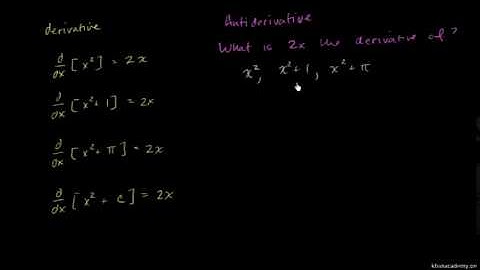 derivative
d/dx [x² ] = 2x
d/dx [x²+1] = 2x
d/dx [x²+ π] = 2x
d/dx [x² + c] = 2x
Antiderivative
What is 2x the derivative of?
x², x²+1, x²+π
khanacademy.org